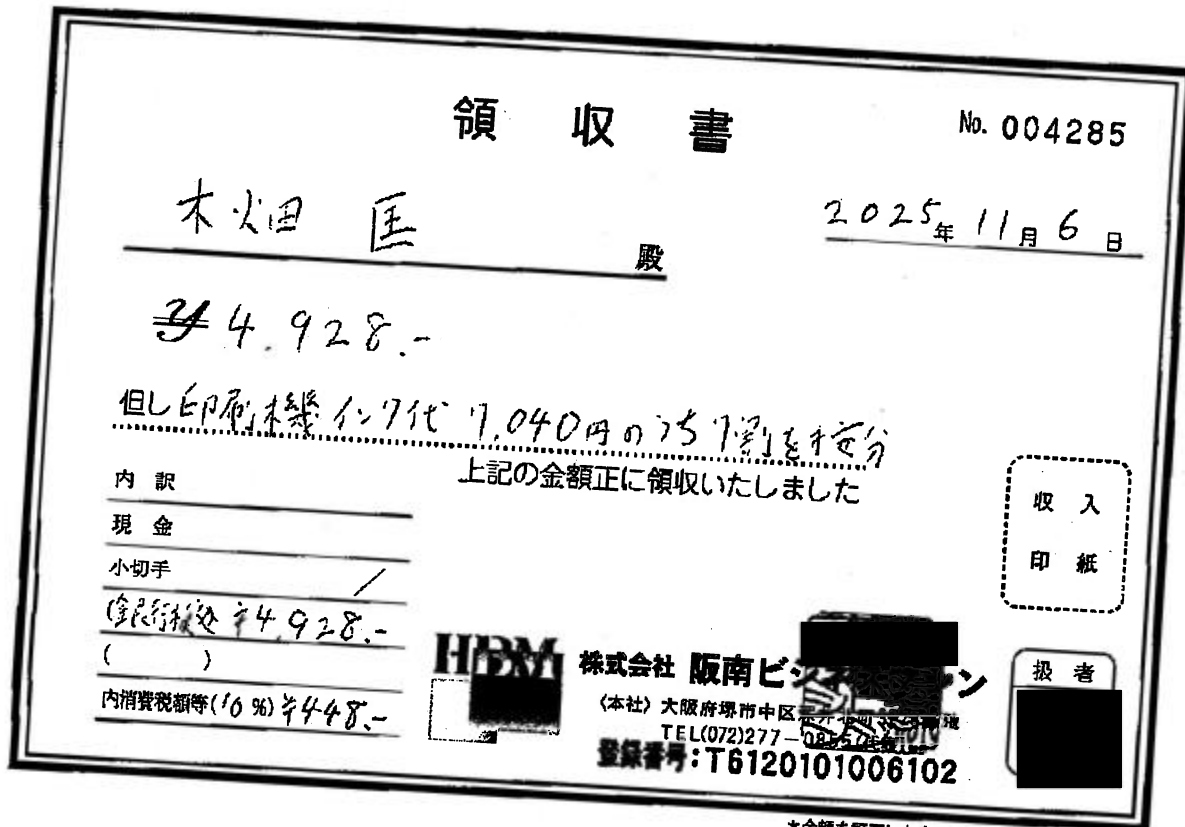 領収書
No. 004285
木畑 匡 殿
2025年 11月 6日
¥4.928.-
但し 印刷機インク代 7.040円のうち7割を按分
上記の金額正に領収いたしました
内訳
現金
小切手 /
(銀行振込 ¥4.928.-
( )
内消費税額等(10%) ¥448.-
収入
印紙
HBM
株式会社 阪南ビジネスマシン
〈本社〉大阪府堺市中区
TEL(072)277-0855
登録番号:T6120101006102
扱者